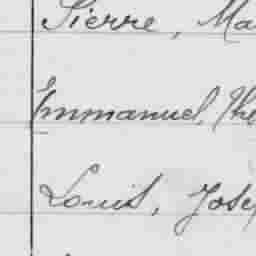 Pierre, Ma
Emmanuel, the
Louis, Jose